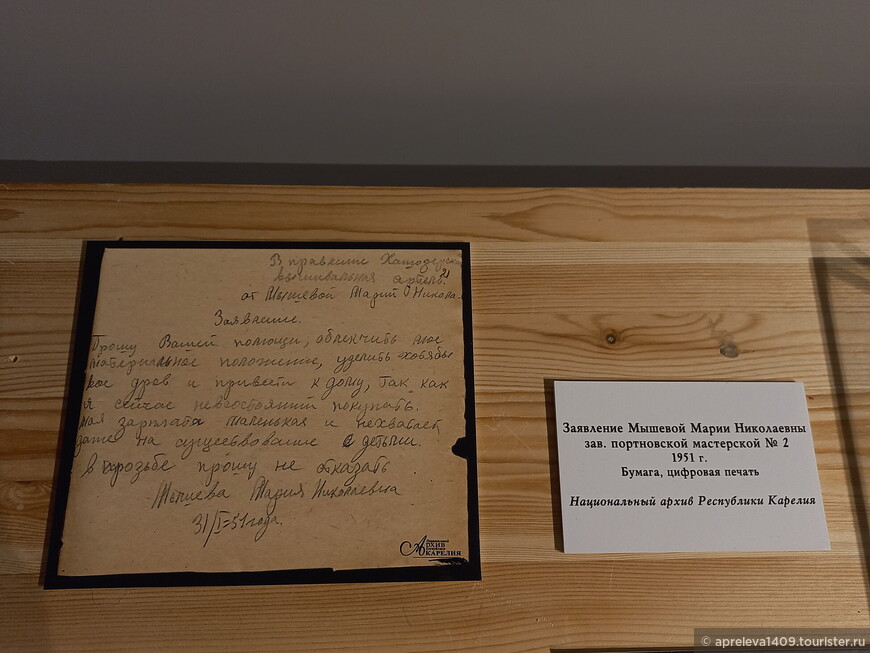 В правление
вышивальная артель
от Мышевой Марий Никола
Заявление.
Прошу Вашей помощи, облекчить мое
материальное положение, уделить хотябы
дров и привести к дому, так как
я сейчас невсостоянии покупать.
моя зарплата маленькая и нехватает
даже на существование с детьми.
в прозьбе прошу не отказать
Мышева Мария Николаевна
31/I-51 года.
АРХИВ
КАРЕЛИЯ
Заявление Мышевой Марии Николаевны
зав. портновской мастерской № 2
1951 г.
Бумага, цифровая печать
Национальный архив Республики Карелия
© apreleva1409.tourister.ru